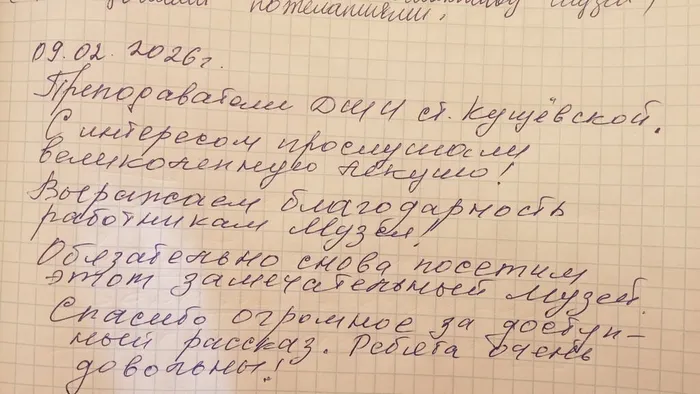 пожеланиями.
09.02.2026г.
Преподаватели ДШИ ст. Кущёвской.
С интересом прослушали
великолепную лекцию!
Выражаем благодарность
работникам Музея!
Обязательно снова посетим
этот замечательный Музей.
Спасибо огромное за доступ-
ный рассказ. Ребята очень
довольны!